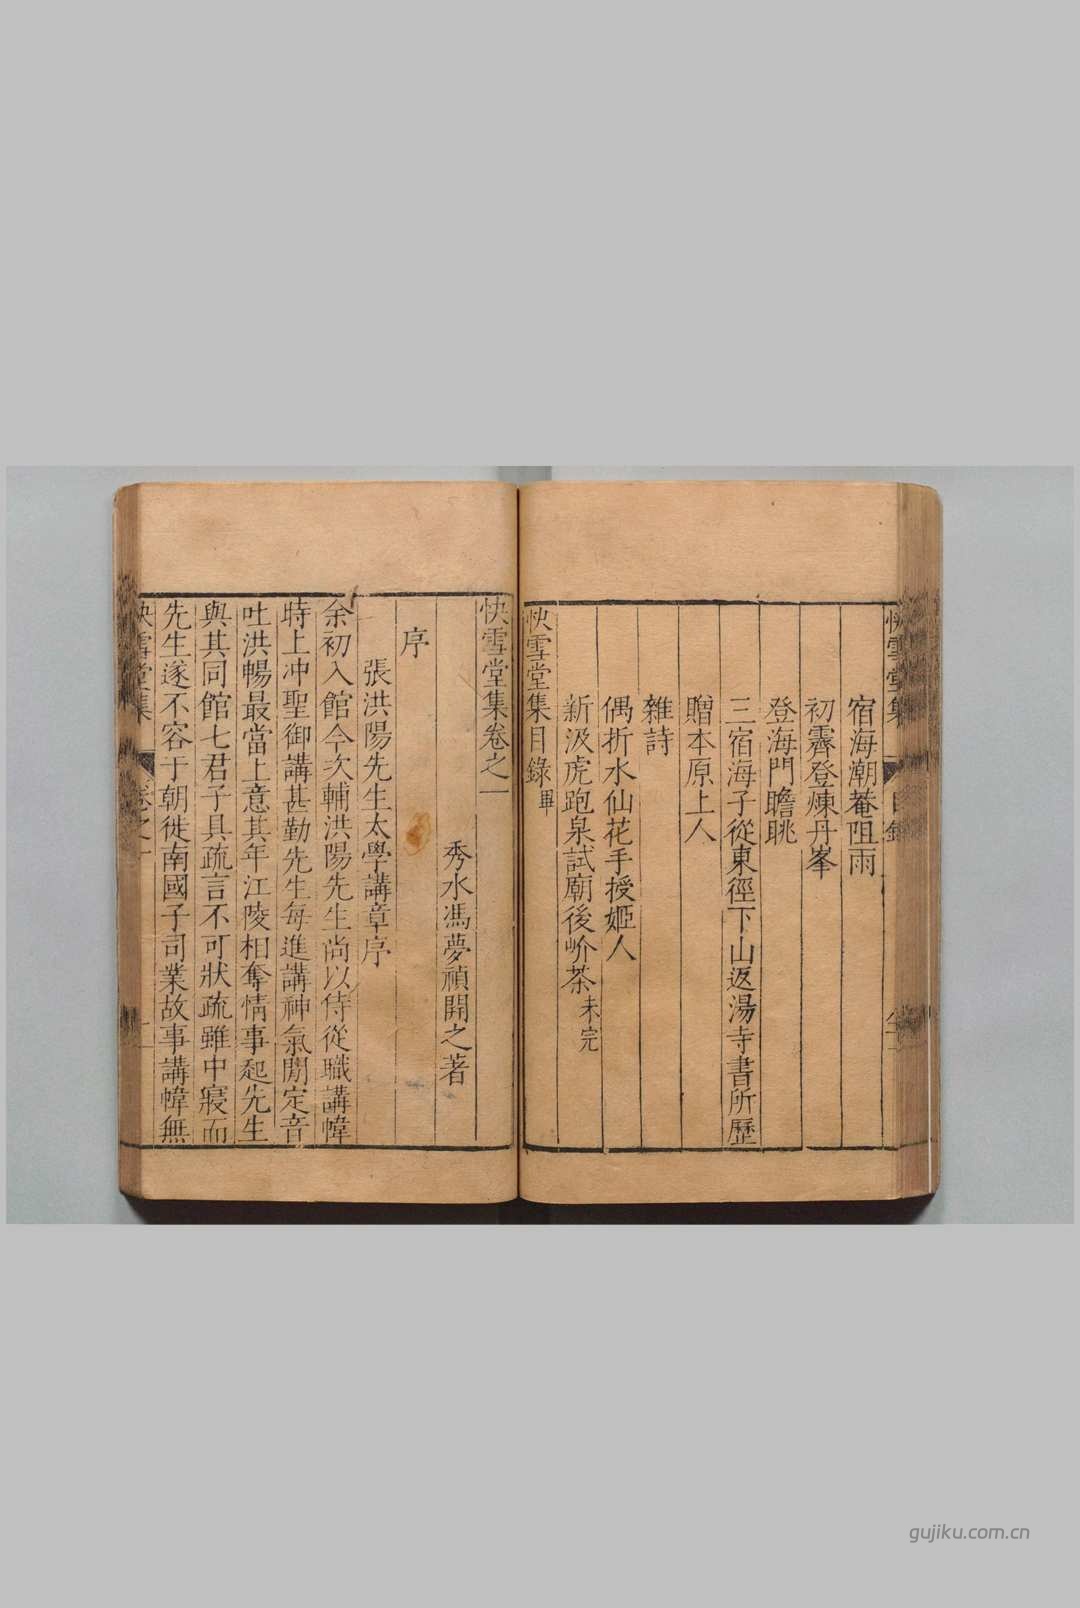 快雪堂集
宿海潮菴阻雨
初霽登煉丹峯
登海門瞻眺
三宿海子從東徑下山返湯寺書所歷
贈本原上人
雜詩
偶折水仙花手授姬人
新汲虎跑泉試廟後岕茶未完
快雪堂集目錄畢
快雪堂集卷之一
秀水馮夢禎開之著
序
張洪陽先生太學講章序
余初入館今次輔洪陽先生尚以侍從職講幃
時上冲聖御講甚勤先生每進講神氣閒定音
吐洪暢最當上意其年江陵相奪情事起先生
與其同館七君子具疏言不可狀疏雖中寢而
先生遂不容于朝徙南國子司業故事講幃無
快雪堂集 卷之一
gujiku.com.cn